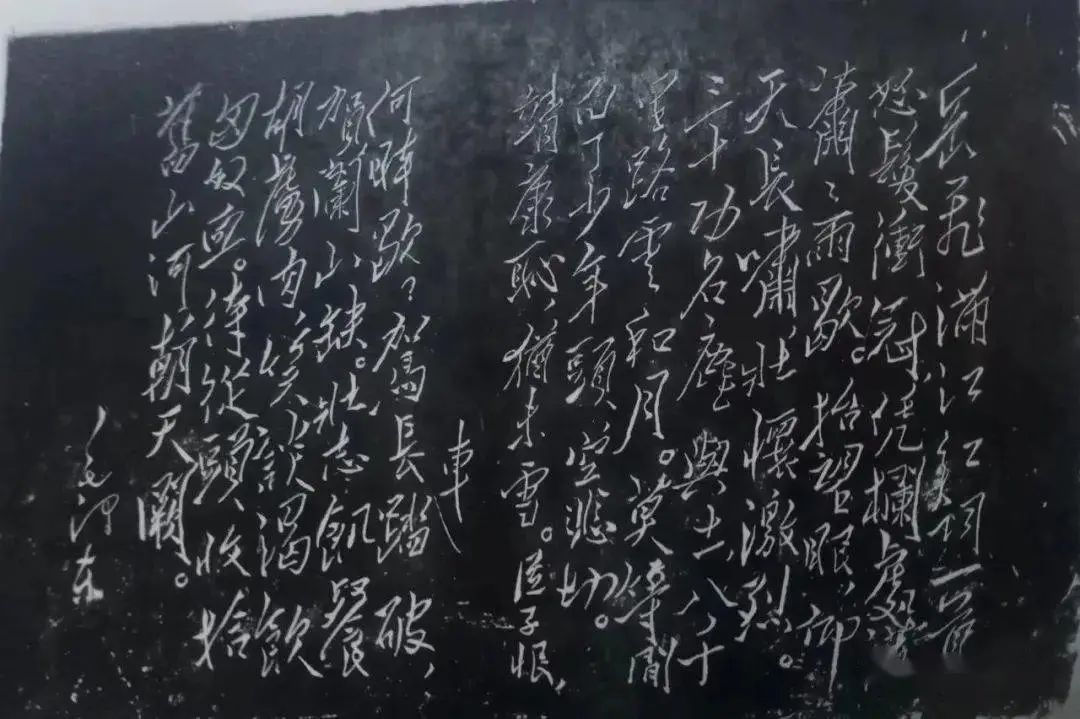 岳飛滿江红詞一首
怒髮衝冠,凭欄處,
瀟〻雨歇。抬望眼,仰
天長嘯,壯懷激烈。
三十功名塵與土,八千
里路雲和月。莫等閒
白了少年頭,空悲切。
靖康恥,猶未雪。臣子恨,
車
何時歇〻駕長踏破,
賀蘭山缺。壯志飢餐
胡虜肉,笑談渴飲
匈奴血。待從頭,收拾
舊山河,朝天闕。
毛泽东